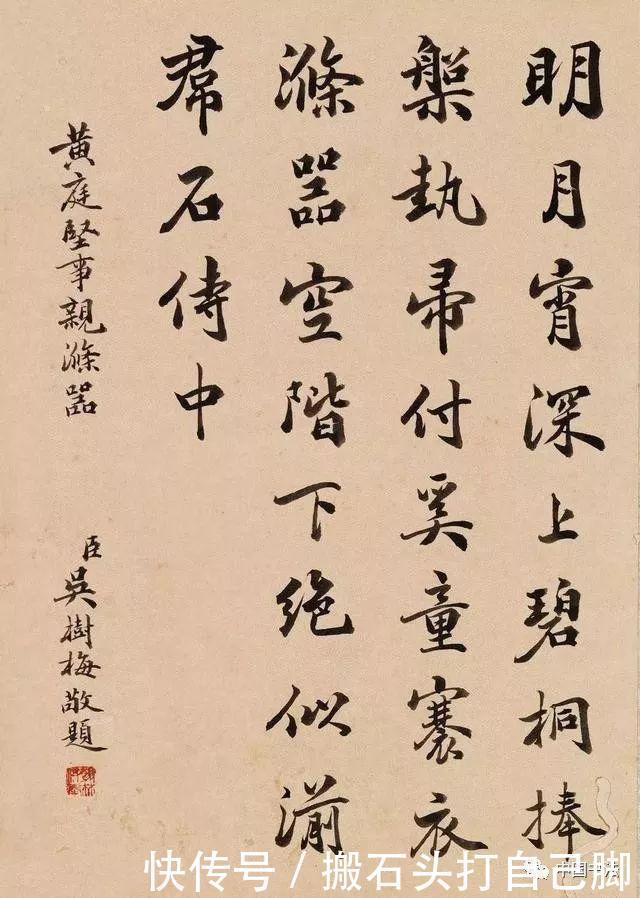 明月宵深上碧桐捧
槃執帚付奚童褰衣
滌器空階下絶似湔
帬石侍中
黃庭堅事親滌器
臣吳樹梅敬題
快传号 / 搬石头打自己脚
中国书法